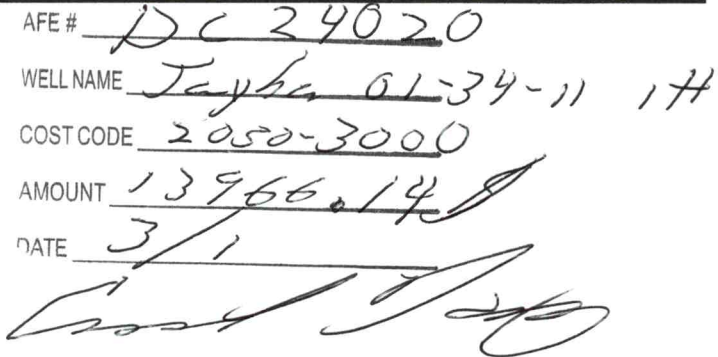 AFE # DC 24020
WELL NAME Jayha 01-34-11 1H
COST CODE 2050-3000
AMOUNT 13966.14
DATE 3/1